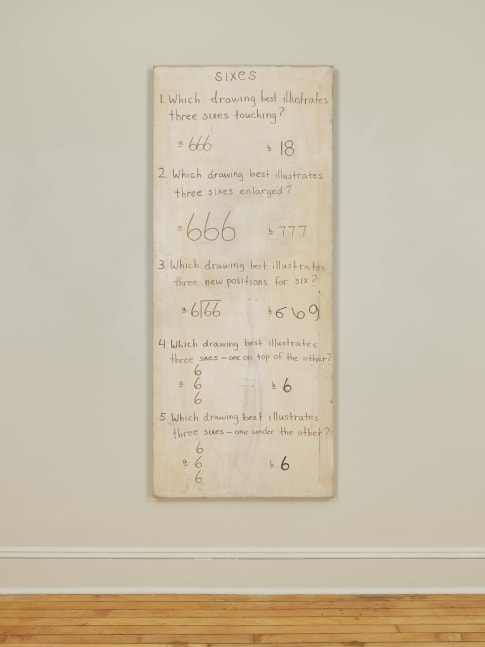 SIXES
1. Which drawing best illustrates
three sixes touching?
a. 666
b. 18
2. Which drawing best illustrates
three sixes enlarged?
a. 666
b. 777
3. Which drawing best illustrates
three new positions for six?
a. 6)66
b. 6 6 9
4. Which drawing best illustrates
three sixes – one on top of the other?
6
a. 6
b. 6
6
5. Which drawing best illustrates
three sixes – one under the other?
6
a. 6
b. 6
6